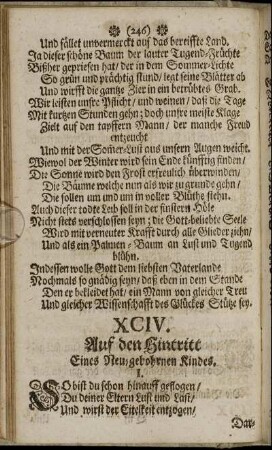 (246)
Und fället unvermerckt auf das bereiffte Land.
Ja dieser schöne Baum der lauter Tugend-Früchte
Bißher gepriesen hat/ der in dem Sommer-Lichte
So grün und prächtig stund/ legt seine Blätter ab
Und wirfft die gantze Zier in ein betrübtes Grab.
Wir leisten unsre Pflicht/ und weinen/ daß die Tage
Mit kurtzen Stunden gehn; doch unsre meiste Klage
Zielt auf den tapffern Mann/ der manche Freud
entzeucht
Und mit der Som̃er-Lust aus unsern Augen weicht.
Wiewol der Winter wird sein Ende künfftig finden/
Die Sonne wird den Frost erfreulich überwinden/
Die Bäume welche nun als wir zu grunde gehn/
Die sollen um und um in voller Blüthe stehn.
Auch dieser todte Leib soll in der finstern Höle
Nicht stets verschlossen seyn; die Gott-beliebte Seele
Wird mit verneuter Krafft durch alle Glieder ziehn/
Und als ein Palmen-Baum an Lust und Tugend
blühn.
Indessen wolle Gott dem liebsten Vaterlande
Nochmals so gnädig seyn/ daß eben in dem Stande
Den er bekleidet hat/ ein Mann von gleicher Treu
Und gleicher Wissenschafft des Glückes Stütze sey.
XCIV.
Auf den Hintritt
Eines Neu-gebohrnen Kindes.
1.
So bist du schon hinauff geflogen/
Du deiner Eltern Lust und Last/
Und wirst der Eitelkeit entzogen/
Dar-